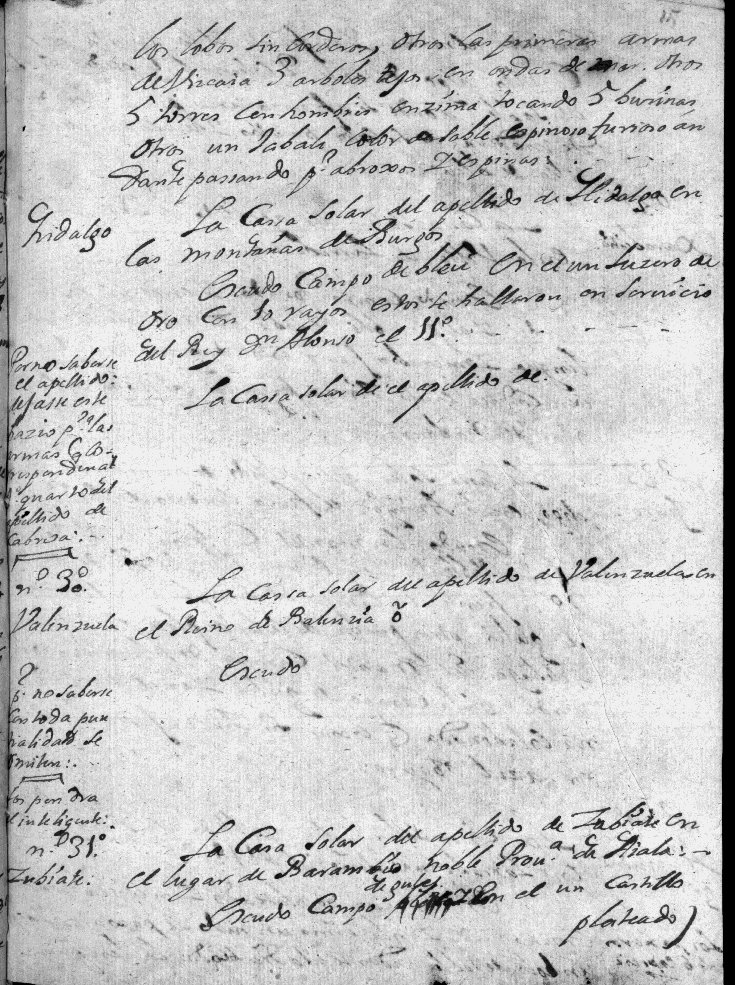 los lobos sin corderos, otros las primeras armas
de Vizcaia 3 arboles tejos en ondas de mar. otros
5 torres con hombres enzima tocando 5 buzinas
otros un Jabali color de sable espinoso furioso an
dante passando pr abroxos y espinas:
Hidalgo
La Cassa Solar del apellido de Hidalgo en
las montañas de Burgos
Escudo Campo de bleu en el un Luzero de
oro con 10 rayos estos se hallaron en servicio
del Rey Dn Alonso el 11º.
Por no saberse
el apellido:
dejasse este
pazio pa las
armas Co-
rrespondientes
quarto del
apellido de
Cabresa:
La Cassa solar de el apellido de
nº 30.
Valenzuela
La Cassa solar del apellido de Valenzuela en
el Reino de Balencia õ
Escudo
Pr no saberse
con toda pun
tualidad se
omiten:
los pondra
el inteligente:
nº 31º
Zubiate:
La Cassa Solar del apellido de Zubiate en
el lugar de Barambio noble Prova de Aiala:
de gules
Escudo Campo con el un Castillo
plateado)